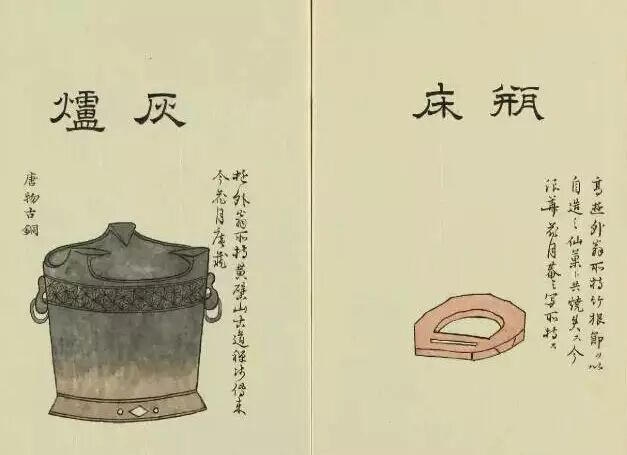 瓶床
高遊外翁所持竹根節ヲ以
自造之仙ト共焼失ス今
浪華花月菴之写所持ス
灰爐
遊外翁所持黄檗山古道禅師傳来
今花月庵蔵
唐物古銅